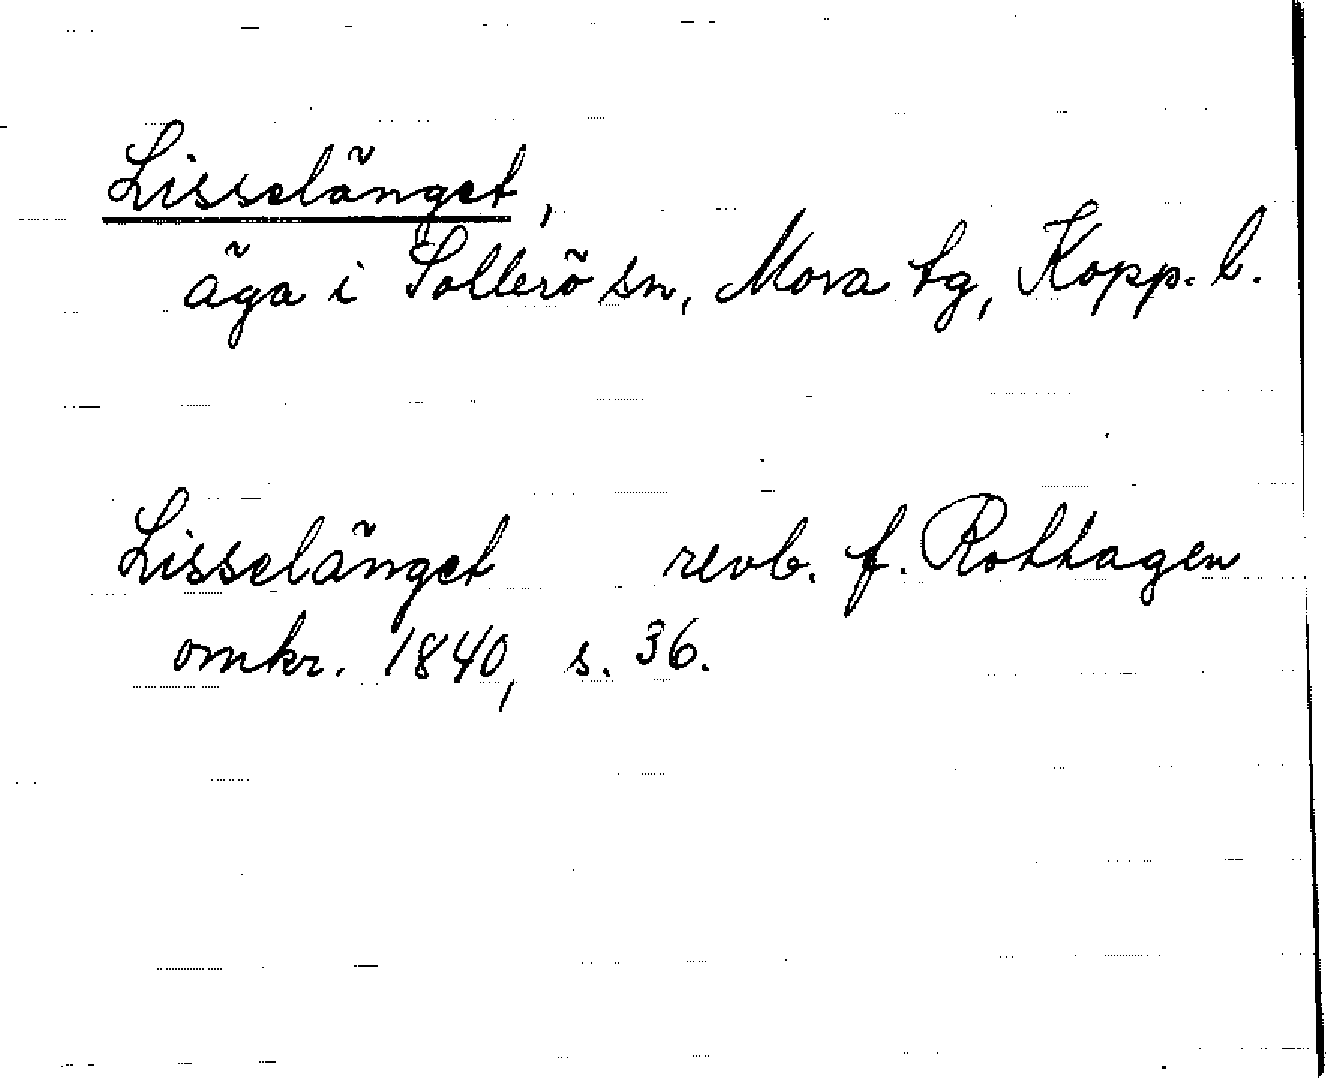 Lisselänget,
äga i Sollerö sn, Mora tg, Kopp. l.
Lisselänget revb. f. Rothagen
omkr. 1840, s. 36.